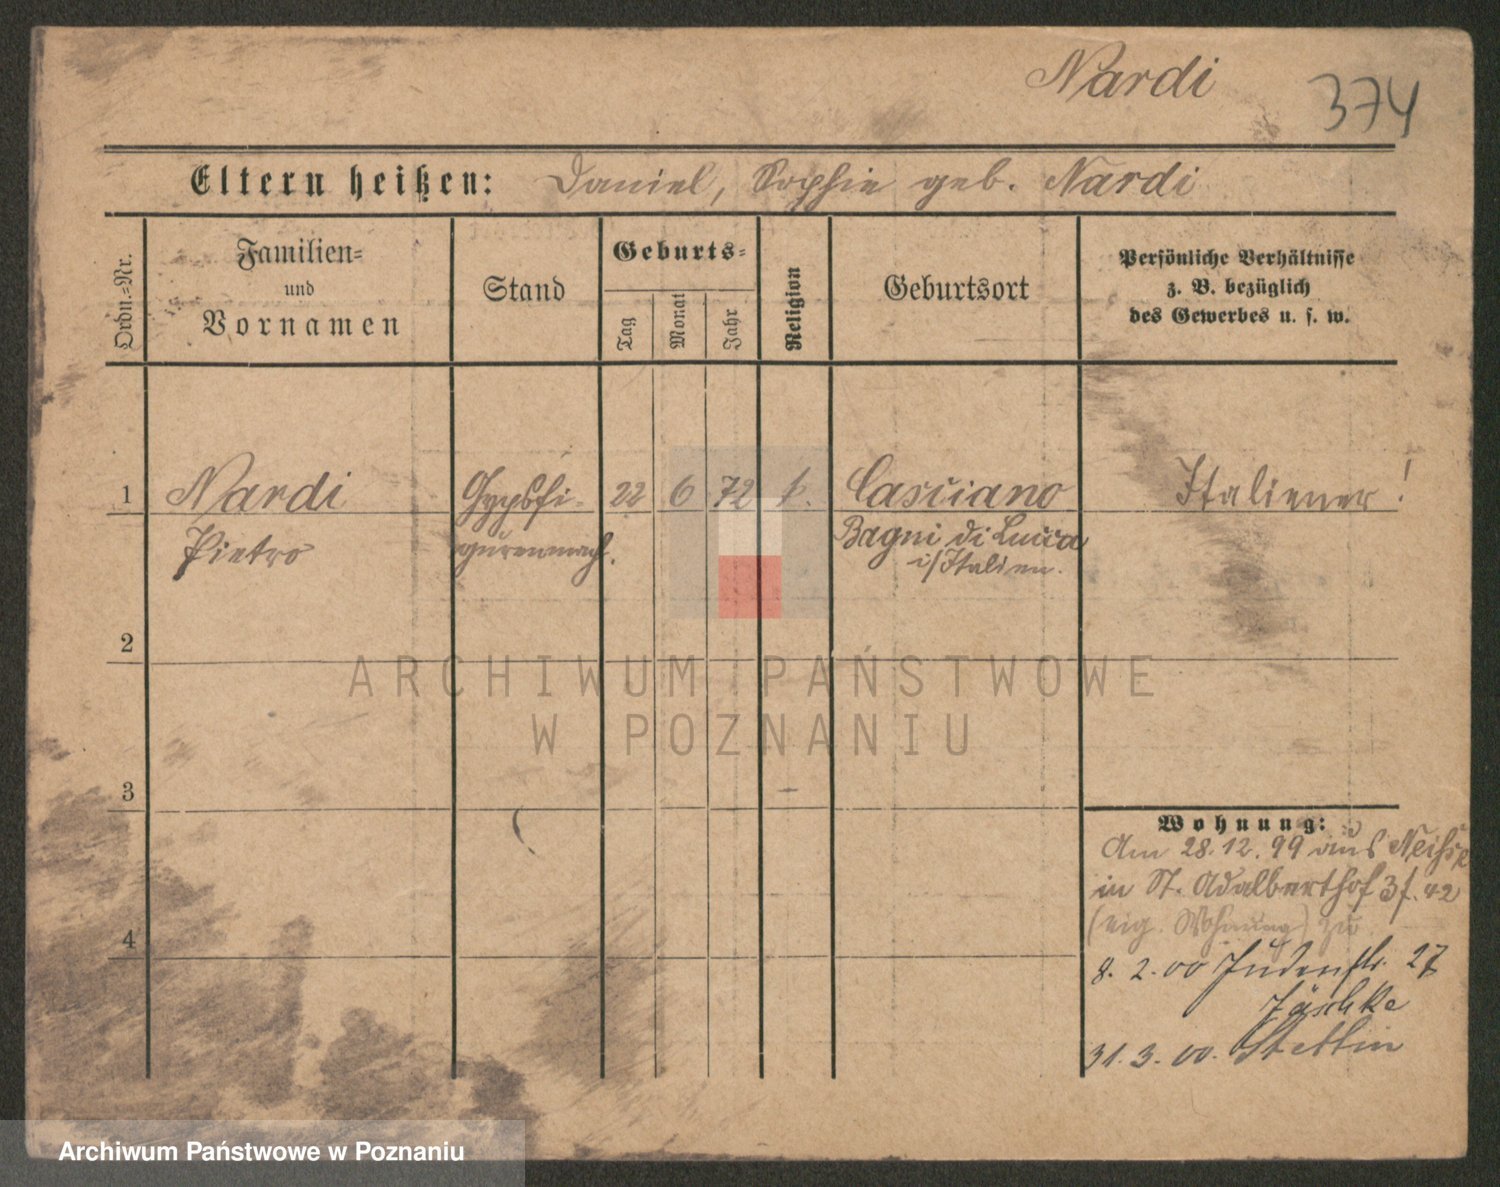 Nardi
374
Eltern heißen: Daniel, Sophie geb. Nardi
Ordn.-Nr.
Familien-
und
Vornamen
Stand
Geburts-
Tag
Monat
Jahr
Religion
Geburtsort
Persönliche Verhältnisse
z. B. bezüglich
des Gewerbes u. s. w.
1
Nardi
Pietro
Gypsfi-
gurenmach.
22
6
72
k.
Casciano
Bagni di Lucca
i/Italien.
Italiener!
2
3
4
Wohnung:
Am 28.12.99 aus Neisse
in St. Adalberthof 3 f. 42
(eig. Wohnung) zu
8. 2. 00 Judenstr. 27
Jäschke
31. 3. 00. Stettin
ARCHIWUM PAŃSTWOWE
W POZNANIU
Archiwum Państwowe w Poznaniu